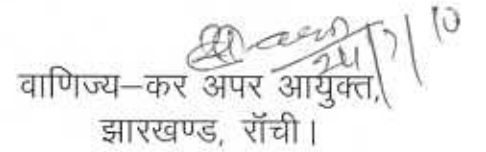 24/7/10
वाणिज्य–कर अपर आयुक्त,
झारखण्ड, राँची।